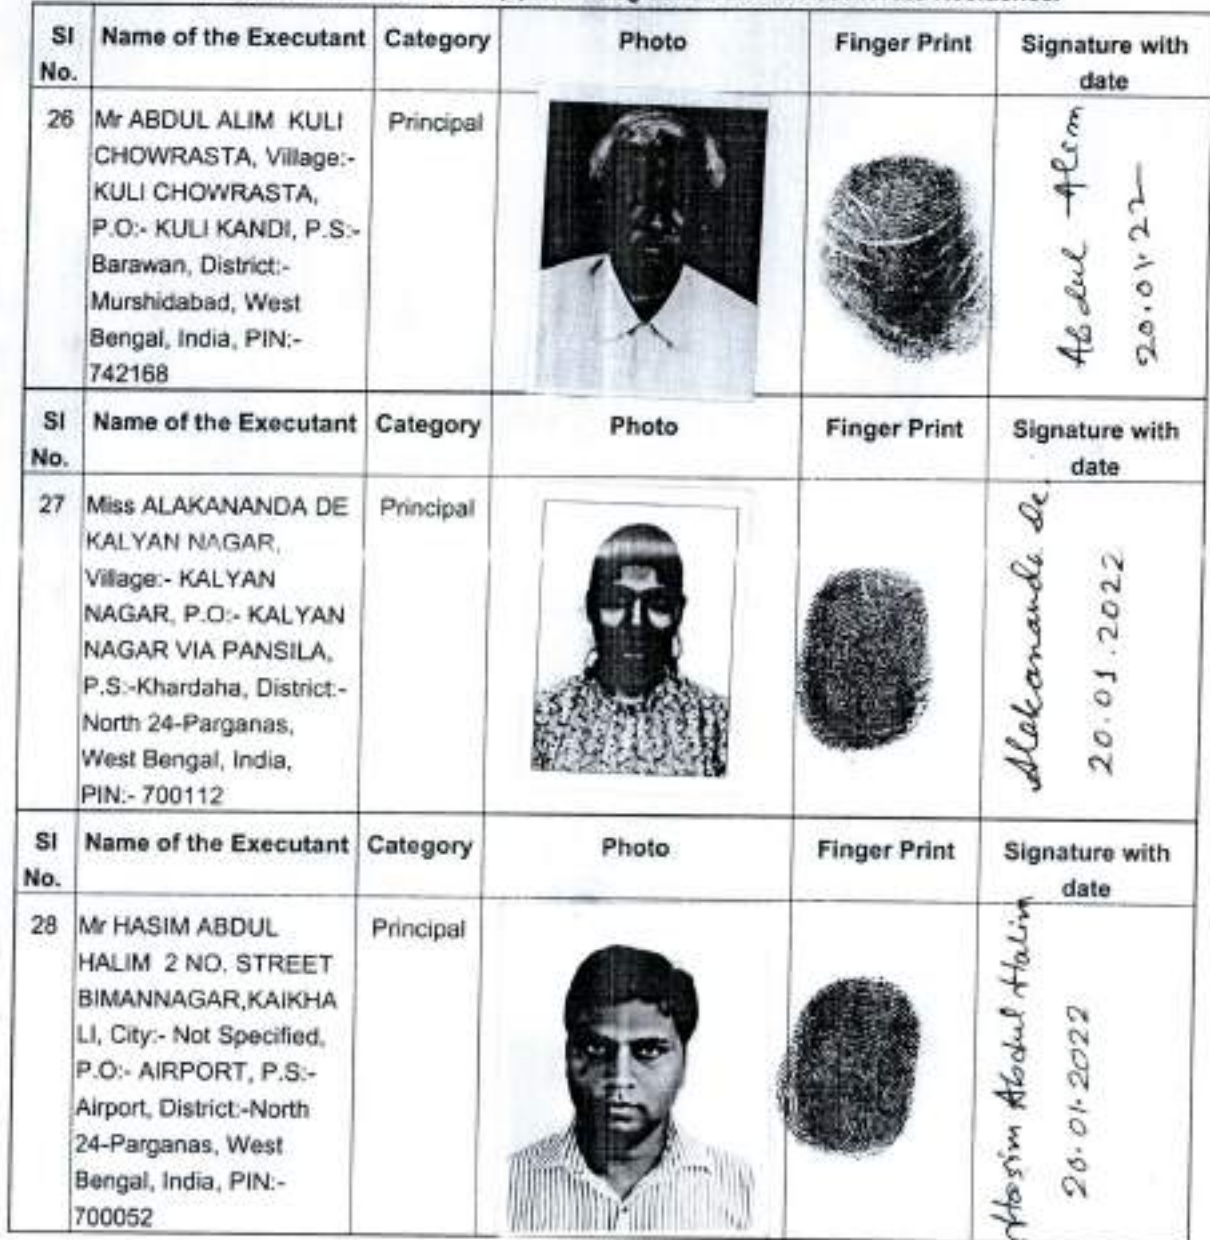 Residence.
SI No.
Name of the Executant
Category
Photo
Finger Print
Signature with date
26
Mr ABDUL ALIM KULI
CHOWRASTA, Village:-
KULI CHOWRASTA,
P.O:- KULI KANDI, P.S:-
Barawan, District:-
Murshidabad, West
Bengal, India, PIN:-
742168
Principal
Abdul Alim
20.01.22
SI No.
Name of the Executant
Category
Photo
Finger Print
Signature with date
27
Miss ALAKANANDA DE
KALYAN NAGAR,
Village:- KALYAN
NAGAR, P.O:- KALYAN
NAGAR VIA PANSILA,
P.S:-Khardaha, District:-
North 24-Parganas,
West Bengal, India,
PIN:- 700112
Principal
Alakananda De.
20.01.2022
SI No.
Name of the Executant
Category
Photo
Finger Print
Signature with date
28
Mr HASIM ABDUL
HALIM 2 NO. STREET
BIMANNAGAR,KAIKHA
LI, City:- Not Specified,
P.O:- AIRPORT, P.S:-
Airport, District:-North
24-Parganas, West
Bengal, India, PIN:-
700052
Principal
Hasim Abdul Halim
20.01.2022